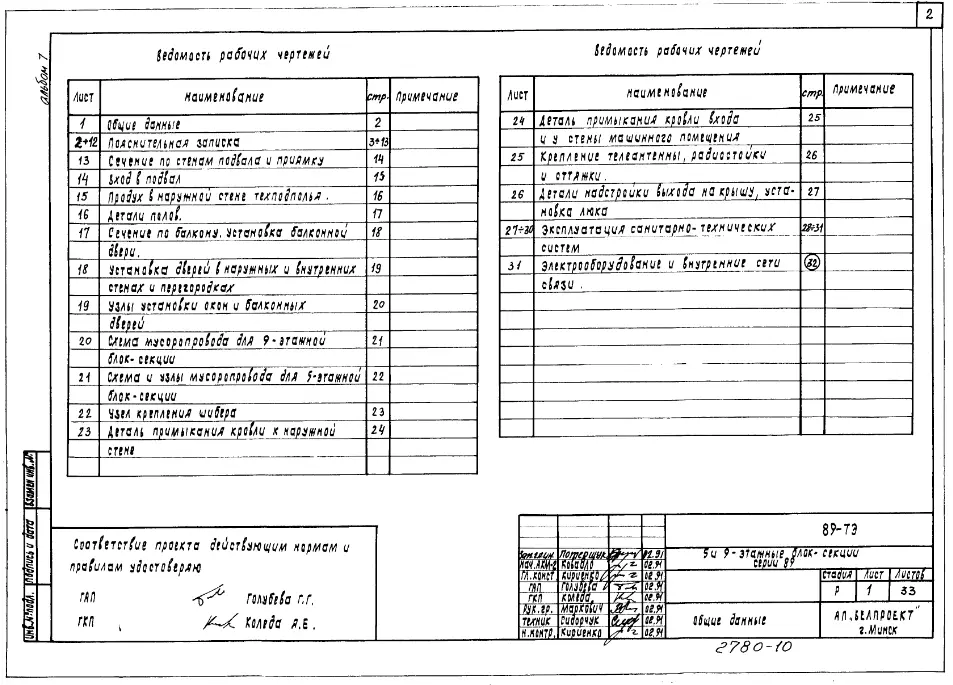 2
альбом 7
Ведомость рабочих чертежей
Лист Наименование стр. Примечание
1 Общие данные 2
2÷12 Пояснительная записка 3÷13
13 Сечение по стенам подвала и приямку 14
14 Вход в подвал 15
15 Продух в наружной стене техподполья. 16
16 Детали полов. 17
17 Сечение по балкону. Установка балконной 18
двери.
18 Установка дверей в наружных и внутренних 19
стенах и перегородках
19 Узлы установки окон и балконных 20
дверей
20 Схема мусоропровода для 9-этажной 21
блок-секции
21 Схема и узлы мусоропровода для 5-этажной 22
блок-секции
22 Узел крепления шибера 23
23 Деталь примыкания кровли к наружной 24
стене
Ведомость рабочих чертежей
Лист Наименование стр. Примечание
24 Деталь примыкания кровли входа 25
и у стены машинного помещения
25 Крепление телеантенны, радиостойки 26
и оттяжки.
26 Детали надстройки выхода на крышу, уста- 27
новка люка
27÷30 Эксплуатация санитарно-технических 28÷31
систем
31 Электрооборудование и внутренние сети 32
связи.
Инв.№подл. Подпись и дата Взамен инв.№
Соответствие проекта действующим нормам и
правилам удостоверяю
ГАП Голубева Г.Г.
ГКП Коледа А.Е.
89-ТЭ
5и 9-этажные блок-секции
серии 89
02.91
нач.АКМ-2 Ковалло 02.91
гл.конст Кириенко 02.91
ГАП Голубева 02.91
ГКП Коледа 02.91
рук.гр. Маркович 02.91
техник Сидорчук 02.91
н.контр. Кириенко 02.91
Общие данные
стадия Лист Листов
Р 1 33
АП „БЕЛПРОЕКТ"
г.Минск
2780-10